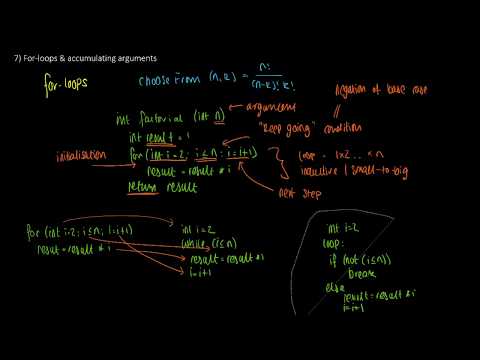 7) For-loops & accumulating arguments
for-loops
choose from (n, k) = n! / (n-k)! k!
negation of base case
int factorial (int n)
argument
int result = 1
"keep going" condition
initialisation
for (int i=2; i≤n; i=i+1)
result = result * i
return result
1×2... ×n
inductive / small-to-big
next step
for (int i=2; i≤n; i=i+1)
result = result * i
int i=2
while (i≤n)
result = result * i
i=i+1
int i=2
loop:
if (not (i≤n))
break
else
result = result * i
i=i+1